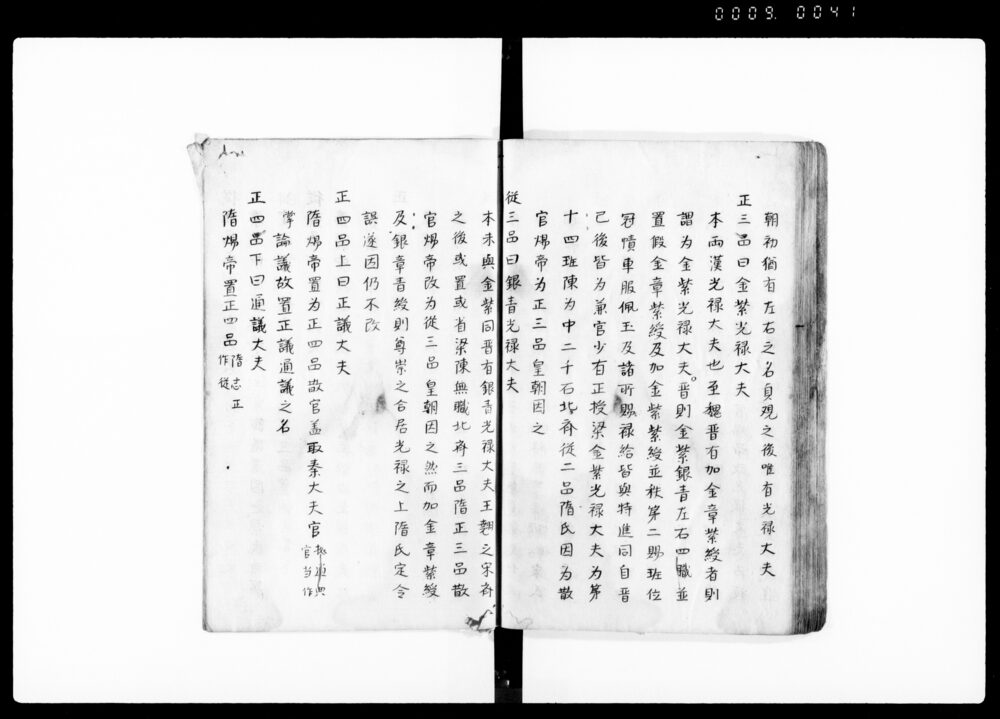 0009. 0041
朝初猶有左右之名貞觀之後唯有光禄大夫
正三品曰金紫光禄大夫
本兩漢光禄大夫也至魏晋有加金章紫綬者則
謂為金紫光禄大夫晋則金紫銀青左右四職並
置假金章紫綬及加金紫紫綬並秩第二賜班位
冠幘車服佩玉及諸所賜禄給皆與特進同自晋
已後皆為兼官少有正授梁金紫光禄大夫為第
十四班陳為中二千石北齊従二品隋氏因為散
官煬帝為正三品皇朝因之
従三品曰銀青光禄大夫
本末與金紫同晋有銀青光禄大夫王翹之宋齊
之後或置或省梁陳無職北齊三品隋正三品散
官煬帝改為従三品皇朝因之然而加金章紫綬
及銀章青綬則尊崇之合居光禄之上隋氏定令
誤遂因仍不改
正四品上曰正議大夫
隋煬帝置為正四品散官盖取秦大夫官
官当作
掌論議故置正議通議之名
正四品下曰通議大夫
隋煬帝置正四品
隋志正
作従